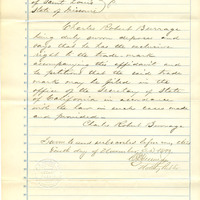 of Saint Louis
State of Missouri
Charles Robert Burrage
being duly sworn deposes and
says that he has the exclusive
right to the trade mark
accompanying this affidavit and
to petitions that the said trade
mark may be filed in the
office of the Secretary of State
of California in accordance
with the law in such cases made
and provided.
Charles Robert Burrage
Sworn to and subscribed before me this
day of